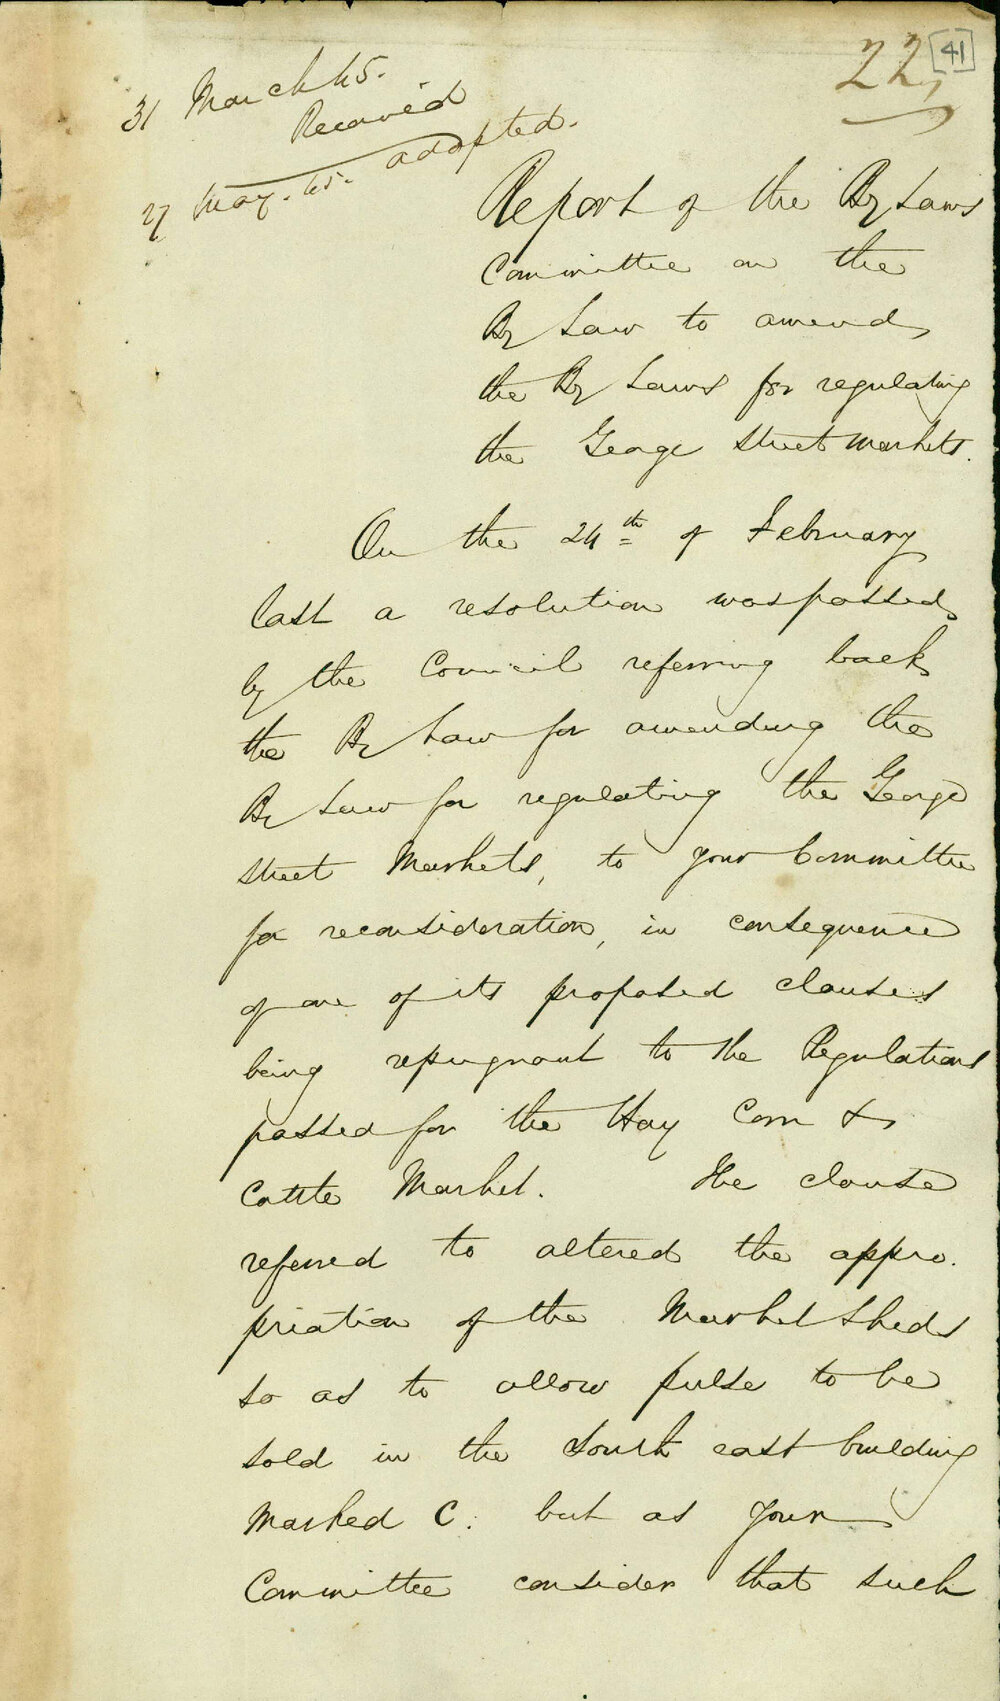 22,
[41]
31 March 45.
Received
27 May. 45. adopted.
Report of the By Laws
Committee on the
By Law to amend
the By Laws for regulating
the George Street Markets.
On the 24th of February
last a resolution was passed
by the Council referring back
the By Law for amending the
By Law for regulating the George
Street Markets, to your Committee
for reconsideration, in consequence
of one of its proposed clauses
being repugnant to the Regulations
passed for the Hay Corn &
Cattle Market. The clause
referred to altered the appro.
priation of the Market Sheds
so as to allow pulse to be
sold in the South east building
Marked C. but as your
Committee consider that such